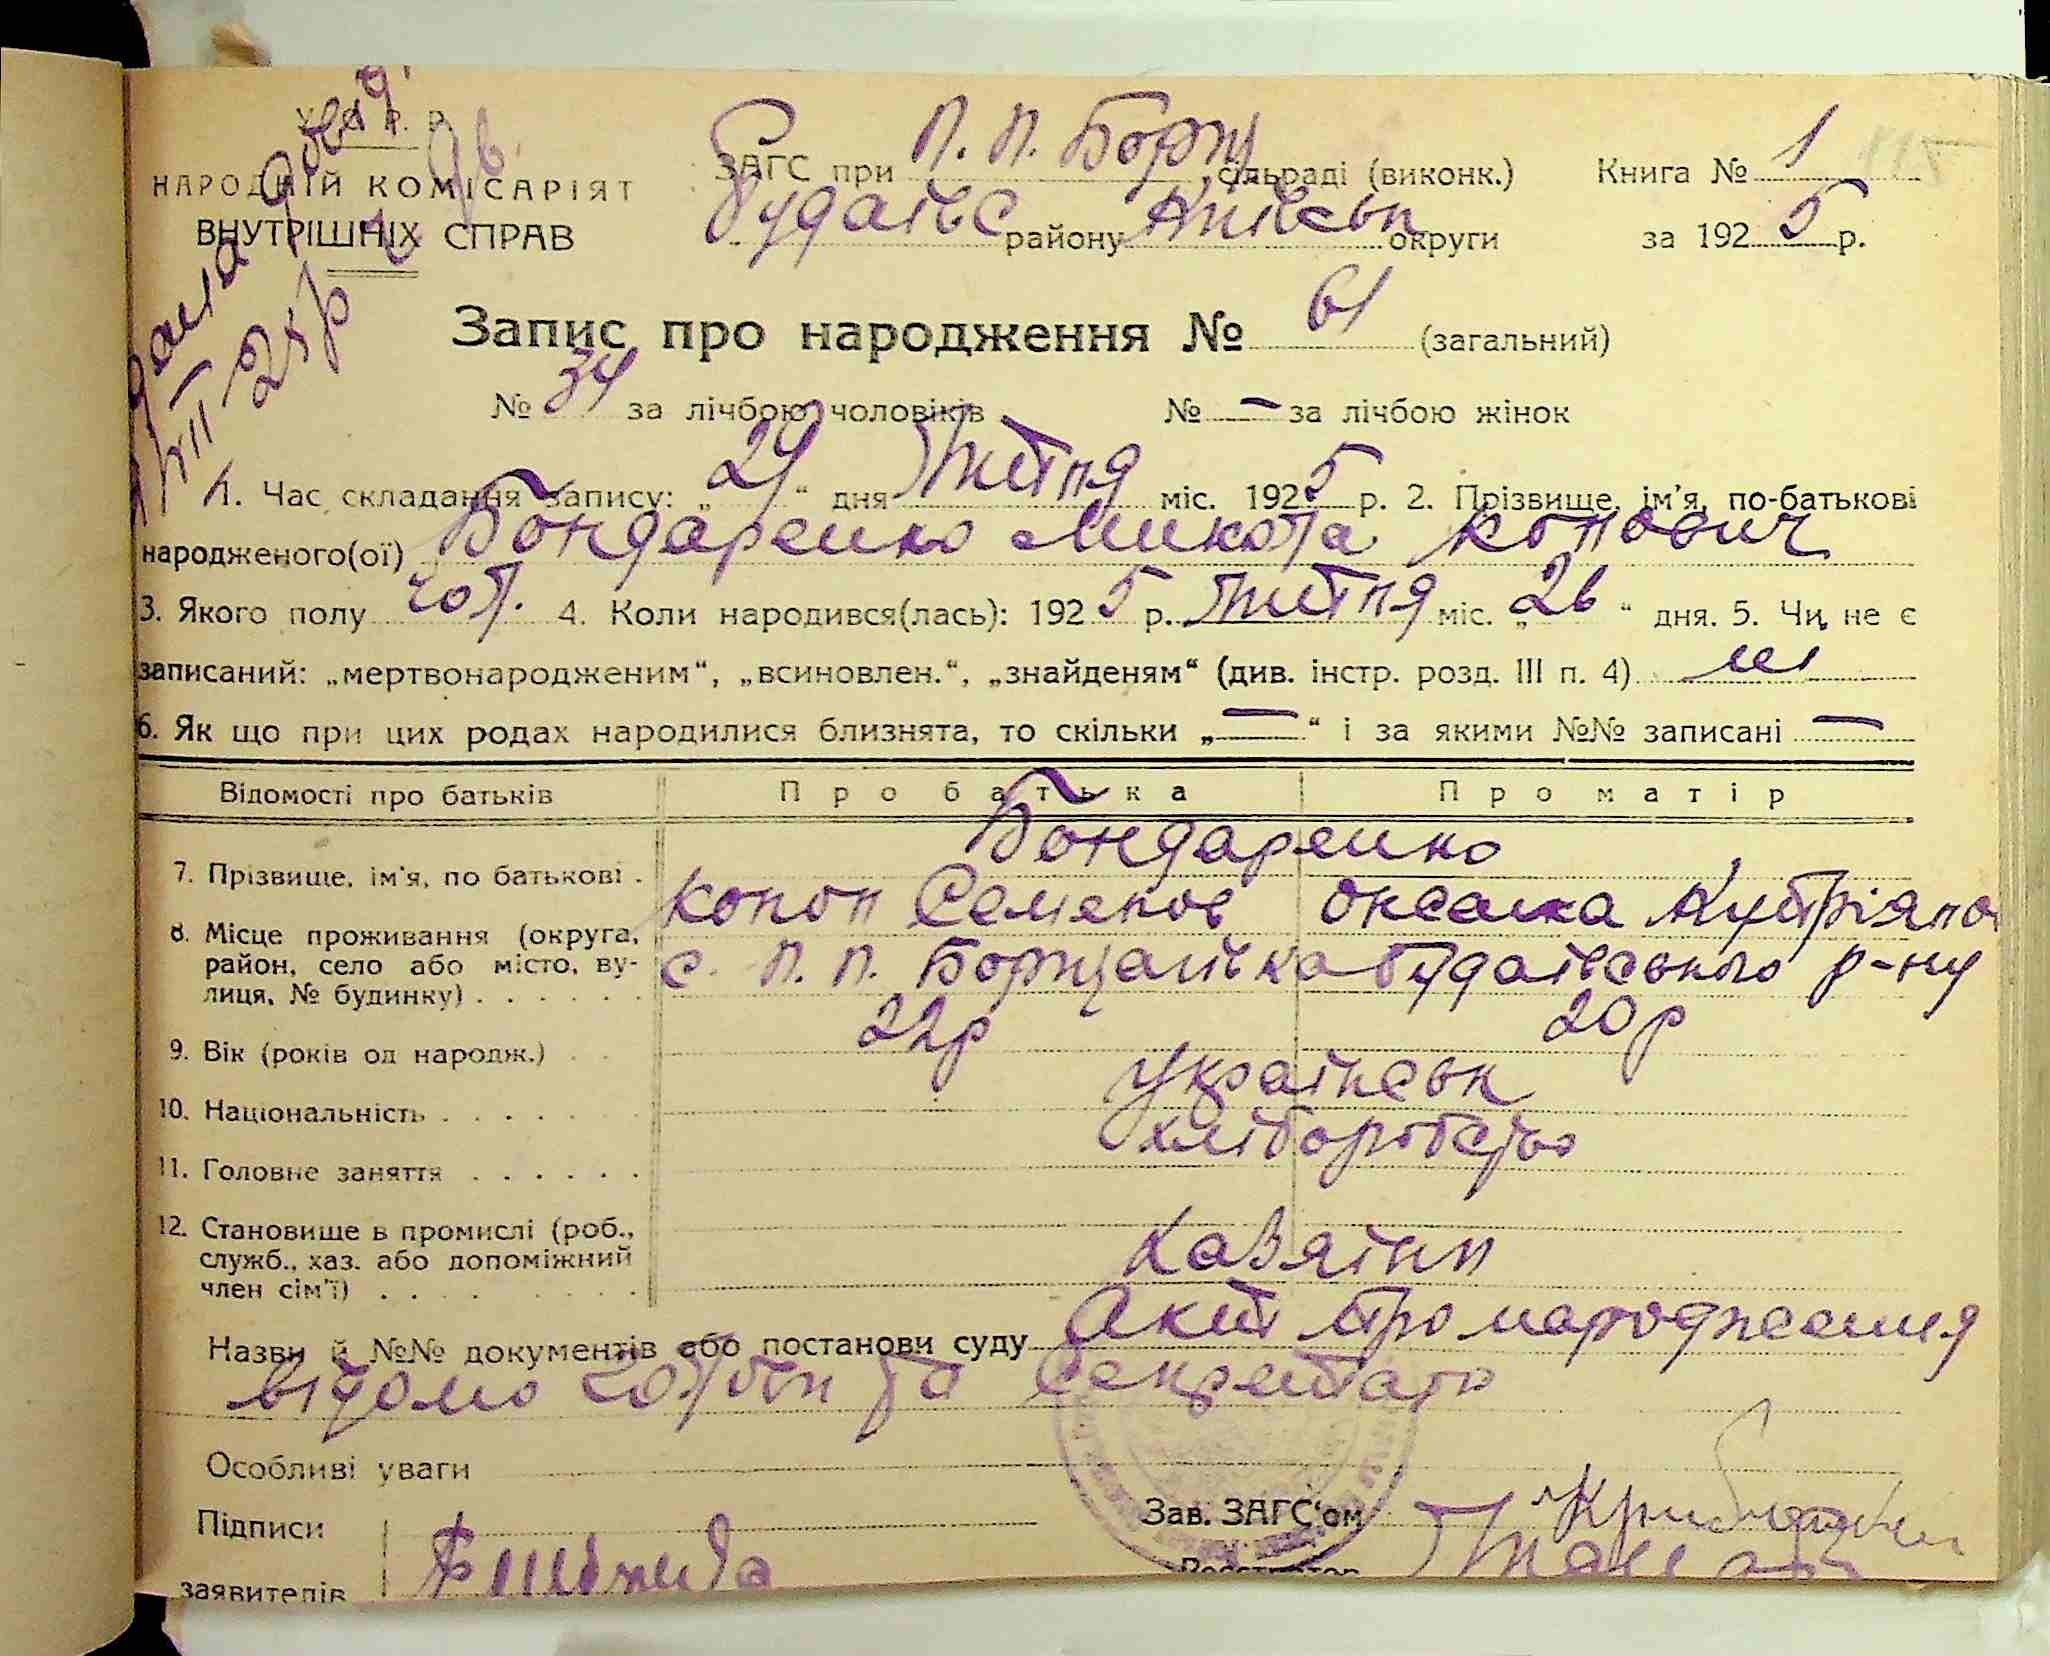 У. С. Р. Р.
НАРОДНІЙ КОМІСАРІЯТ
ВНУТРІШНІХ СПРАВ
ЗАГС при П. П. Борщ сільраді (виконк.) Книга № 1
Будаївс району Київськ округи за 1925 р.
Запис про народження № 61 (загальний)
№ 34 за лічбою чоловіків № — за лічбою жінок
1. Час складання запису: „29“ дня Липня міс. 1925 р. 2. Прізвище, ім'я, по-батькові
народженого(ої) Бондаренко Микола Кононович
3. Якого полу чол. 4. Коли народився(лась): 1925 р. Липня міс. „26“ дня. 5. Чи не є
записаний: „мертвонародженим“, „всиновлен.“, „знайденям“ (див. інстр. розд. III п. 4) ні
6. Як що при цих родах народилися близнята, то скільки „—“ і за якими №№ записані —
Відомості про батьків Про батька Про матір
Бондаренко
7. Прізвище, ім'я, по батькові .
Конон Семенов Оксана
8. Місце проживання (округа,
район, село або місто, ву-
лиця, № будинку) . . . . . .
с. П. П. Борщагівка Будаївського р-ну
9. Вік (років од народж.) . . 22р 20р
10. Національність . . . . . Українськ
11. Головне заняття . . . . . . хліборобство
12. Становище в промислі (роб.,
служб., хаз. або допоміжний
член сім'ї) . . . . . . . .
Хазяїни
Назви й №№ документів або постанови суду Акт про народження
відомо голови та секретаря
Особливі уваги
Підписи
заявителів
Зав. ЗАГС'ом
Реєстратор